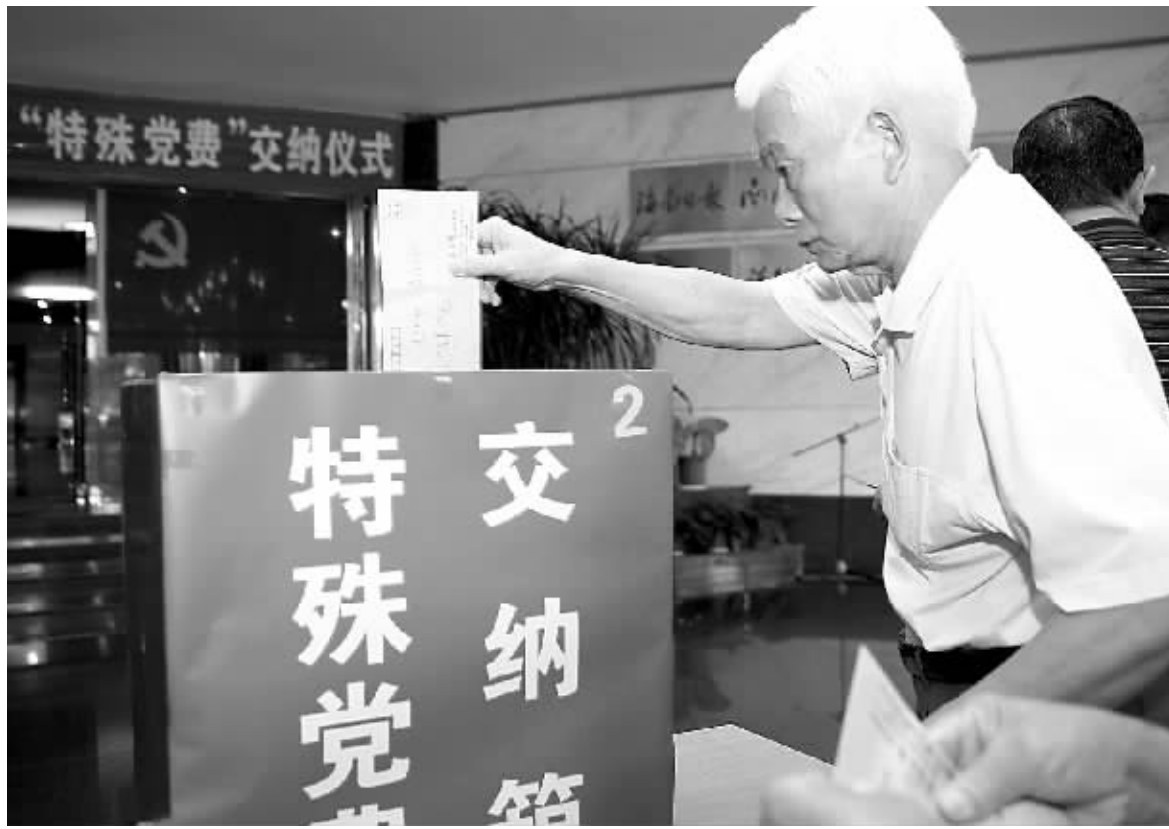 “特殊党费”交纳仪式
2
特殊党费
交纳箱